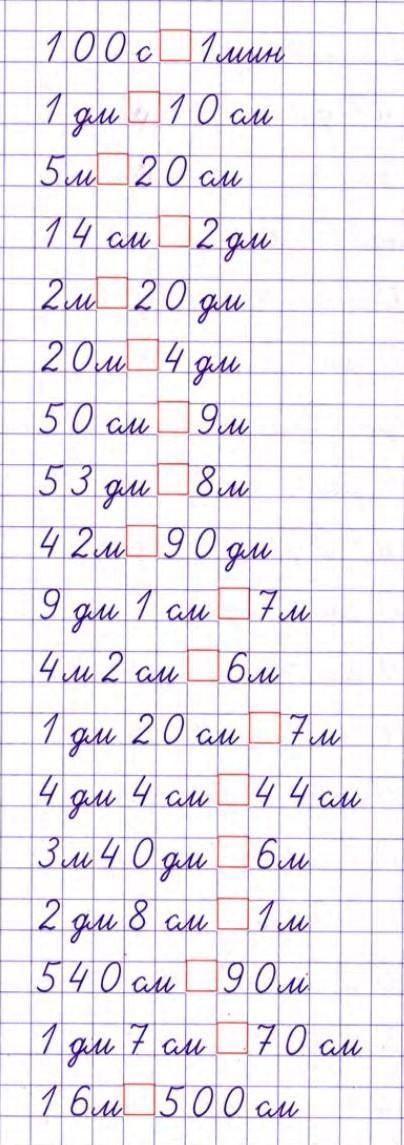 100 с □ 1 мин
1 дм □ 10 см
5 м □ 20 см
14 см □ 2 дм
2 м □ 20 дм
20 м □ 4 дм
50 см □ 9 м
53 дм □ 8 м
42 м □ 90 дм
9 дм 1 см □ 7 м
4 м 2 см □ 6 м
1 дм 20 см □ 7 м
4 дм 4 см □ 44 см
3 м 40 дм □ 6 м
2 дм 8 см □ 1 м
540 см □ 90 м
1 дм 7 см □ 70 см
16 м □ 500 см